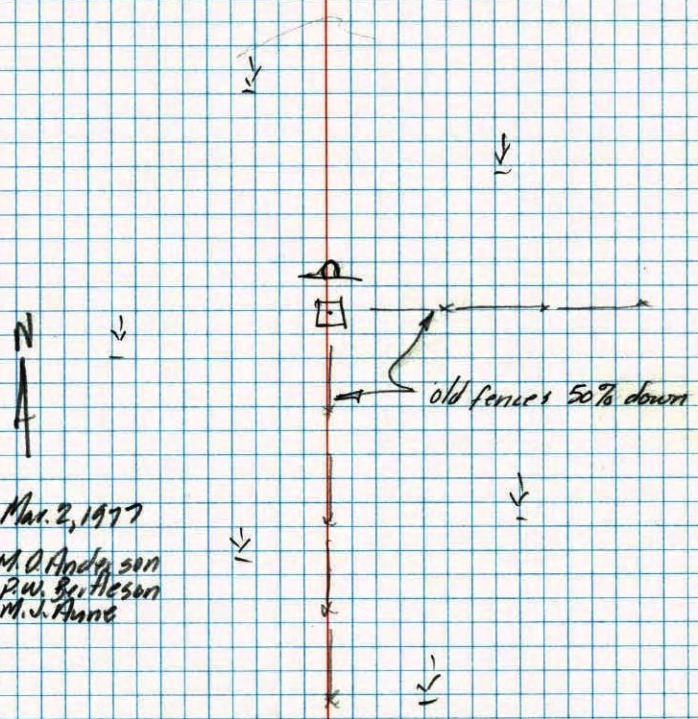 N
old fences 50% down
Mar. 2, 1977
M.O. Anderson
P.W. Bertleson
M.J. Aune